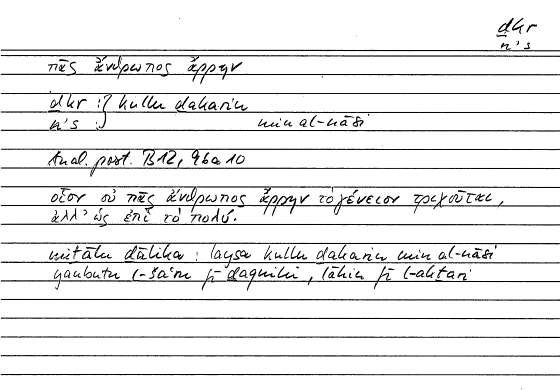 ḏkr
n's
πᾶς ἄνθρωπος ἄρρην
ḏkr :} kullu ḏakarin
n's :} min al-nāsi
Anal. post. B 12, 96a 10
οἷον οὐ πᾶς ἄνθρωπος ἄρρην τὸ γένειον τριχοῦται,
ἀλλ' ὡς ἐπὶ τὸ πολύ.
miṯālu ḏālika : laysa kullu ḏakarin min al-nāsi
yanbutu l-ša'ru fī ḏaqnihi, lākin fī l-akṯari